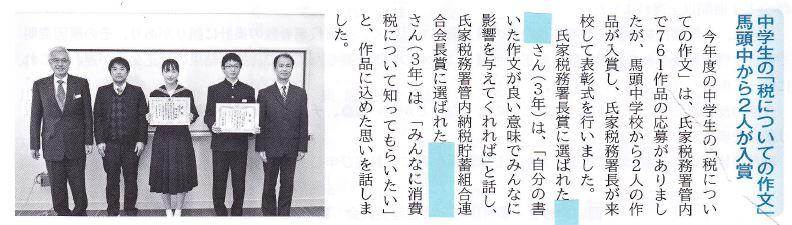 中学生の「税についての作文」
馬頭中から2人が入賞
今年度の中学生の「税につい
ての作文」は、氏家税務署管内
で761作品の応募がありまし
たが、馬頭中学校から2人の作
品が入賞し、氏家税務署長が来
校して表彰式を行いました。
氏家税務署長賞に選ばれた
さん(3年)は、「自分の書
いた作文が良い意味でみんなに
影響を与えてくれれば」と話し、
氏家税務署管内納税貯蓄組合連
合会長賞に選ばれた
さん(3年)は、「みんなに消費
税について知ってもらいたい」
と、作品に込めた思いを話しま
した。